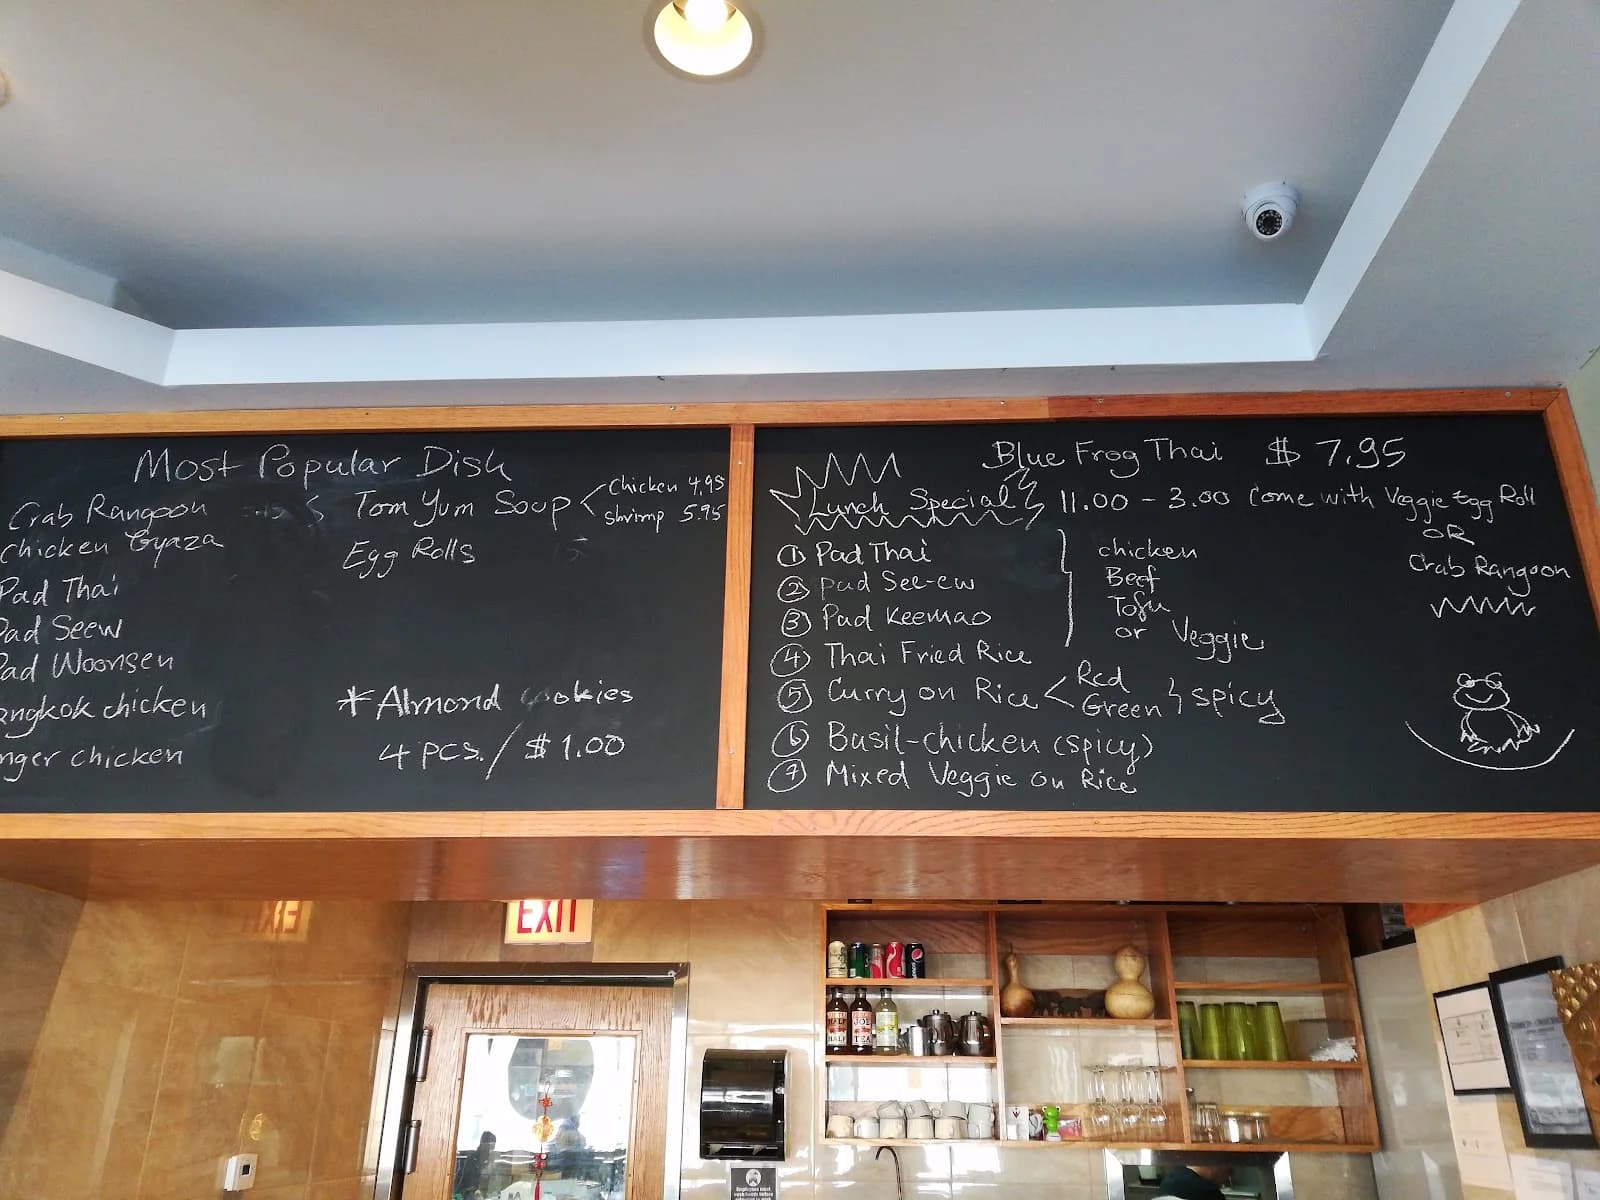 Most Popular Dish
Crab Rangoon
Chicken Gyaza
Pad Thai
Pad Seew
Pad Woonsen
angkok chicken
nger chicken
Tom Yum Soup < Chicken 4.95
shrimp 5.95
Egg Rolls
*Almond ookies
4 pcs. / $1.00
Blue Frog Thai $ 7.95
Lunch Special 11.00 - 3.00 Come with Veggie Egg Roll
OR
Crab Rangoon
① Pad Thai
② pad See-ew
③ Pad Keemao
④ Thai Fried Rice
chicken
Beef
Tofu
or Veggie
⑤ Curry on Rice < Red
Green } spicy
⑥ Basil-chicken (spicy)
⑦ Mixed Veggie on Rice
EXIT
EXIT
HALF
HALF
JOE
TEA
Employees must
wash hands before